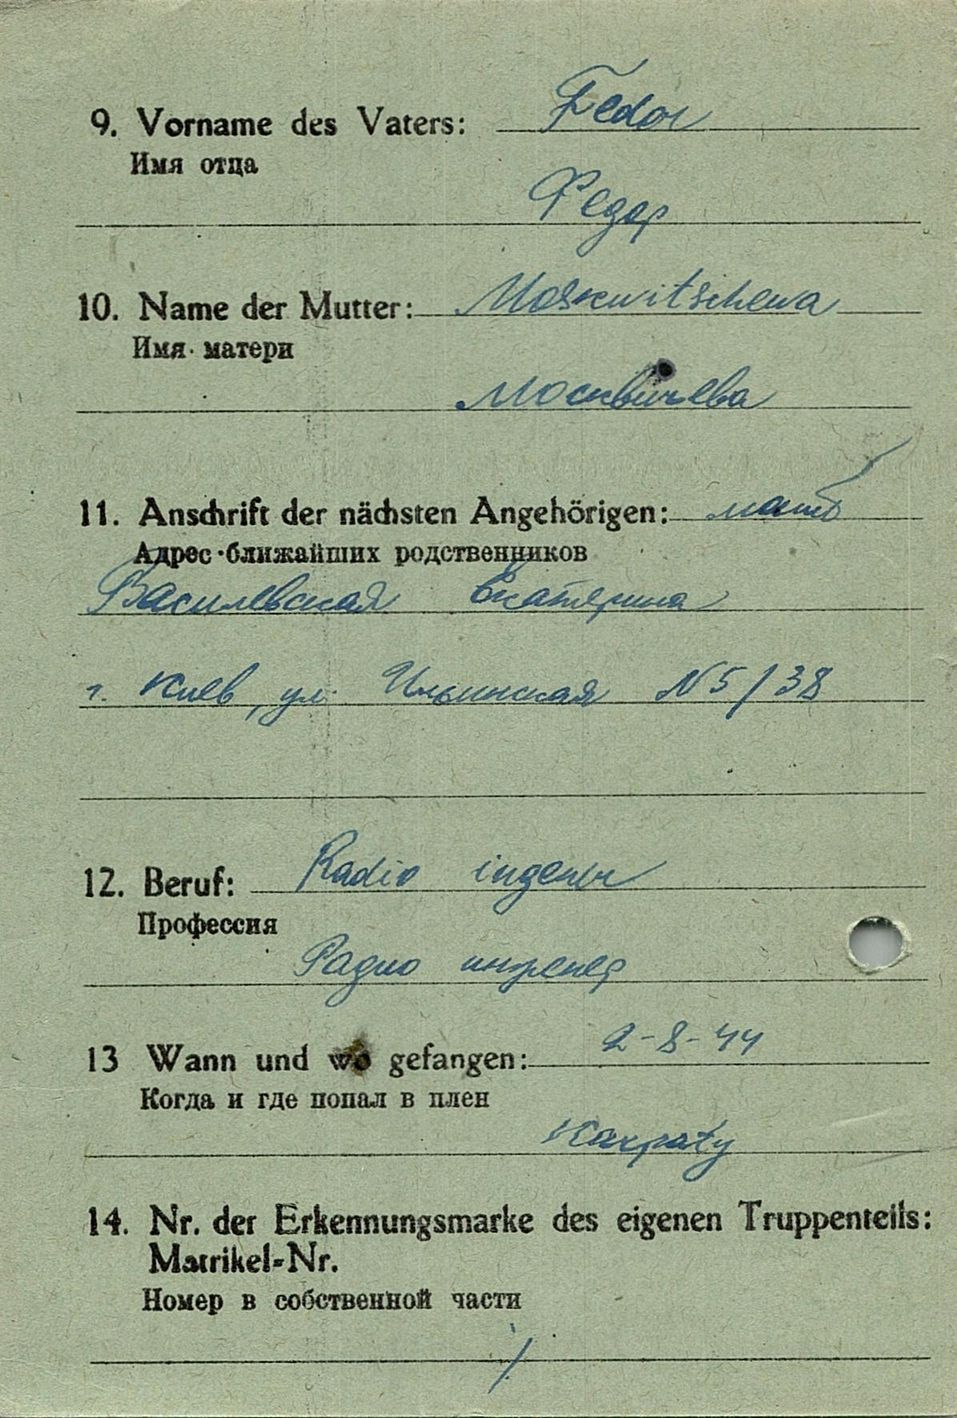 9. Vorname des Vaters: Fedor
Имя отца
Федор
10. Name der Mutter: Moskwitschewa
Имя матери
Москвичева
11. Anschrift der nächsten Angehörigen: мать
Адрес ближайших родственников
Василевская Екатерина
г. Киев, ул. Ильинская N 5/38
12. Beruf: Radio ingener
Профессия
Радио инженер
13 Wann und wo gefangen: 2-8-44
Когда и где попал в плен
Karpaty
14. Nr. der Erkennungsmarke des eigenen Truppenteils:
Matrikel-Nr.
Номер в собственной части